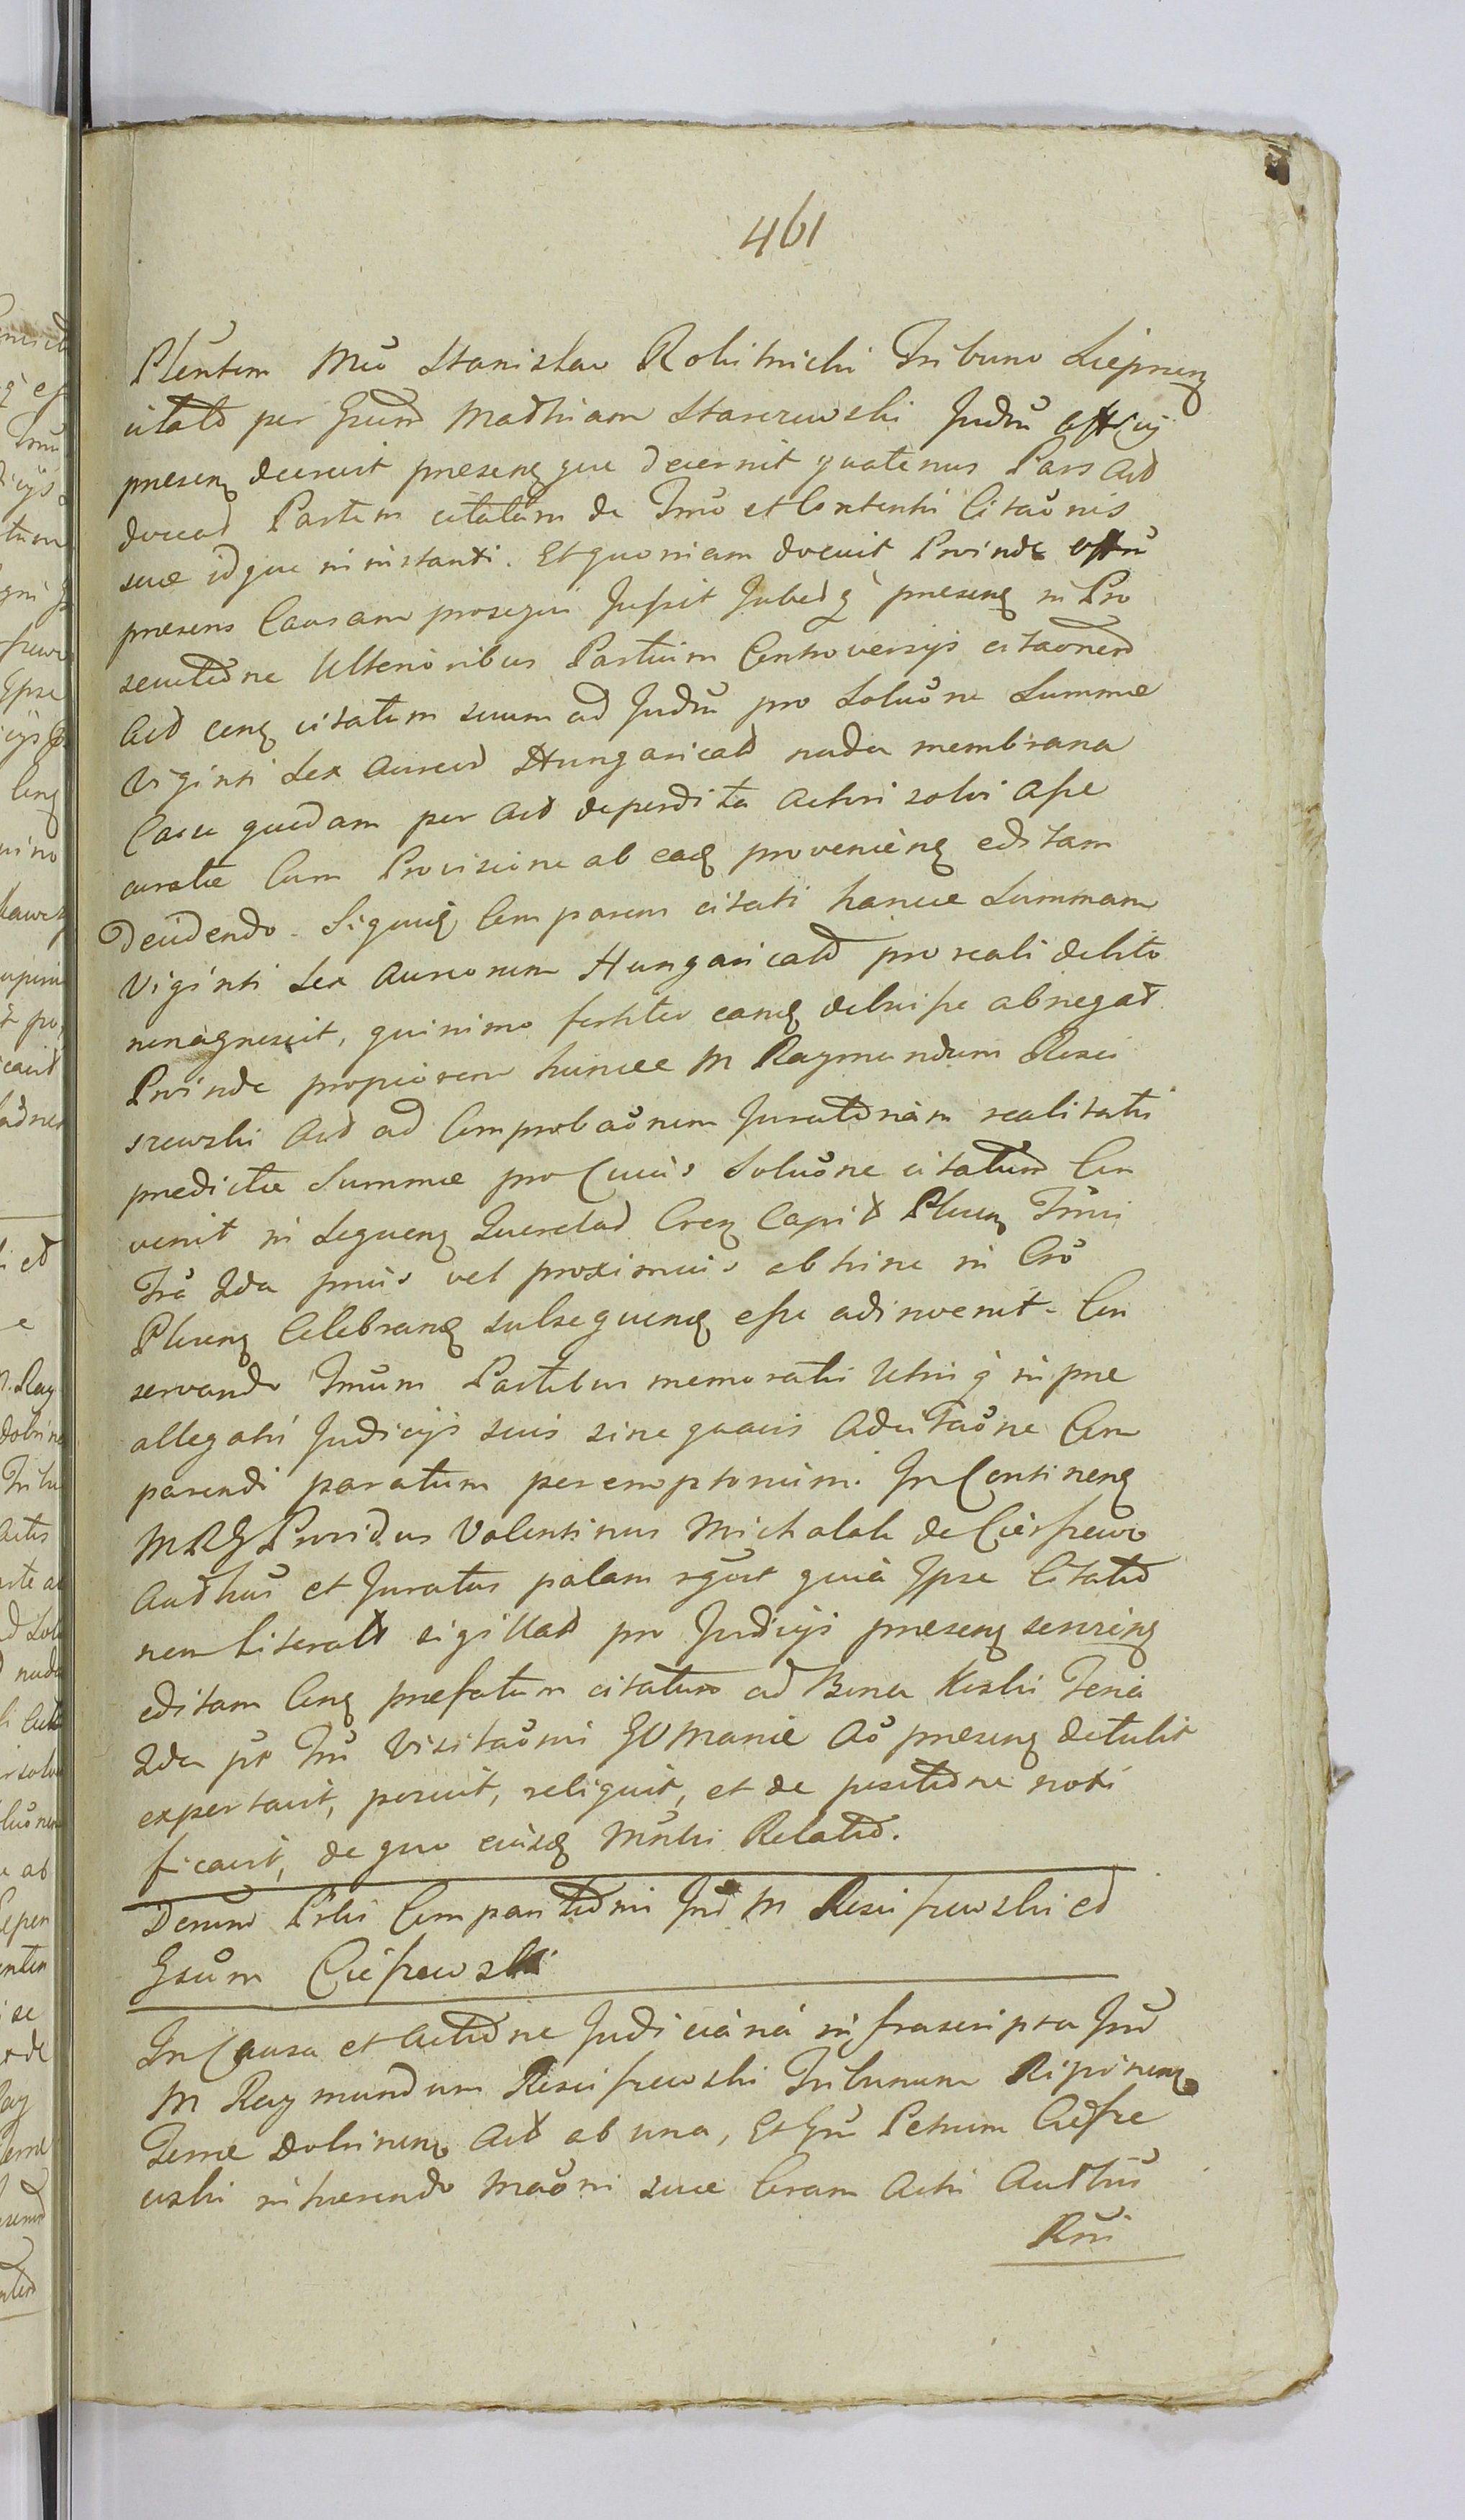 461
Plentem Mco Stanislao Rokitnicki Tribuno Liepnen
citato per Gnum Mathiam Starczewski Judm Offcij
presen decrevit presenq̨ue decernit quatenus Pars Act
doceat Partem citatam de Tmo et Contentis Citaonis
suæ idque in instanti. Et quoniam docuit Proinde Offm
presens Causam prosequi Jussit Jubetq̃ presens in Pro
secutione Ulterioribus Partium Controversijs citaonem
Act conq citatum suum ad Judm pro Soluone Summæ
Viginti Sex Aureor Hungaricalt nuda membrana
Casu quodam per Act deperdita Actori solvi asse
curatæ Cum Provisione ab eaq provenienq editam
Decidendo. Siquidq Comparens citati hancce Summam
Viginti Sex Aureorum Hungaricalt pro reali debito
nonagnescit, quinimo fortiter eamq debuisse abnegat
Proinde propiorem huncce M Raymundum Risci
szewski Act ad Comprobaonem Juratoriam realitatis
predictæ Summæ pro Cuius Soluone citatum Con
venit in Sequenq Querelas Cren Capit Plocen Tmi
Tra 2da prius vel proximius abhinc in Cro
Plocenq Celebranq subsequenq esse adinvenit. Con
servando Tmum Partibus memoratis Utriq in præ
allegatis Judicijs suis sine quavis Adcitaone Com
parendi paratum peremptorium. In Continenq
MRG Providus Valentinus Michalak de Ciessewo
Authus et Juratus palam rgovt quia Ipse Citatio
nem Literalt sigillat pro Judicijs presenq servienq
editam Conq prefatum citatum ad Bona Kozki Feria
2da pt Fm Visitaonis GV Mariæ Ao presenq detulit
exportavit, posuit, reliquit, et de positione noti
ficavit, de quo eiusdq Mntri Relatio.
Demum Prlis Comparitionis Jnr M Risciszewski et
Gsum Ciessewski
In Causa et Actione Judiciaria infrascripta Jnr
M Raymundum Risciszewski Tribunum Ripinenq
Terræ Dobrinenq Act ab una, Et Gm Petrum Ciesse
wski inhærendo Maoni suæ Coram Actis Authis
Rni